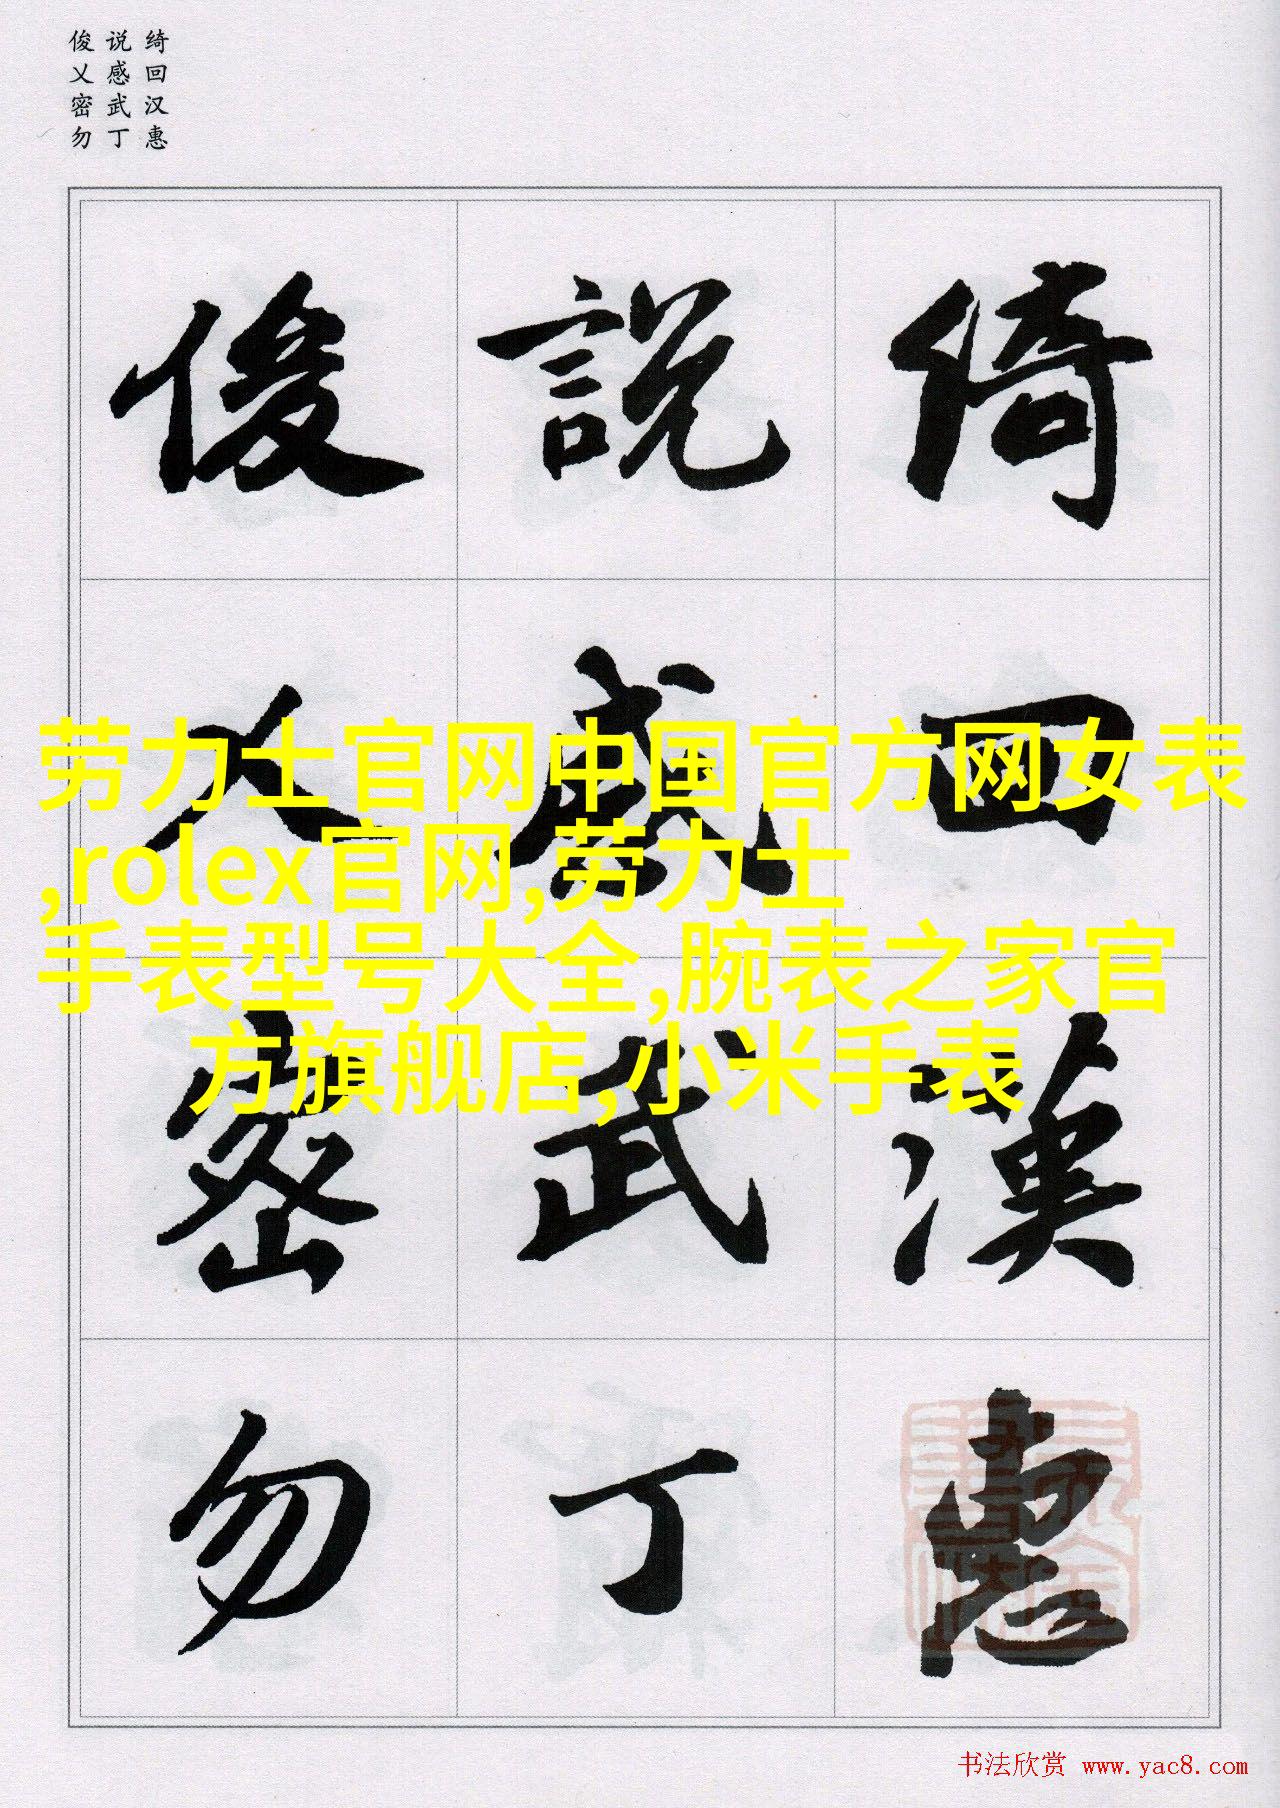 绮回汉惠
说感武丁
俊乂密勿
綺回漢惠
說感武丁
俊乂密勿
劳力士官网中国官方网女表
,rolex官网,劳力士
手表型号大全,腕表之家官
方旗舰店,小米手表
书法欣赏 www.yac8.com